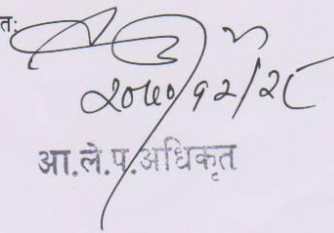 तः
२०७०/१२/२८
आ.ले.प.अधिकृत